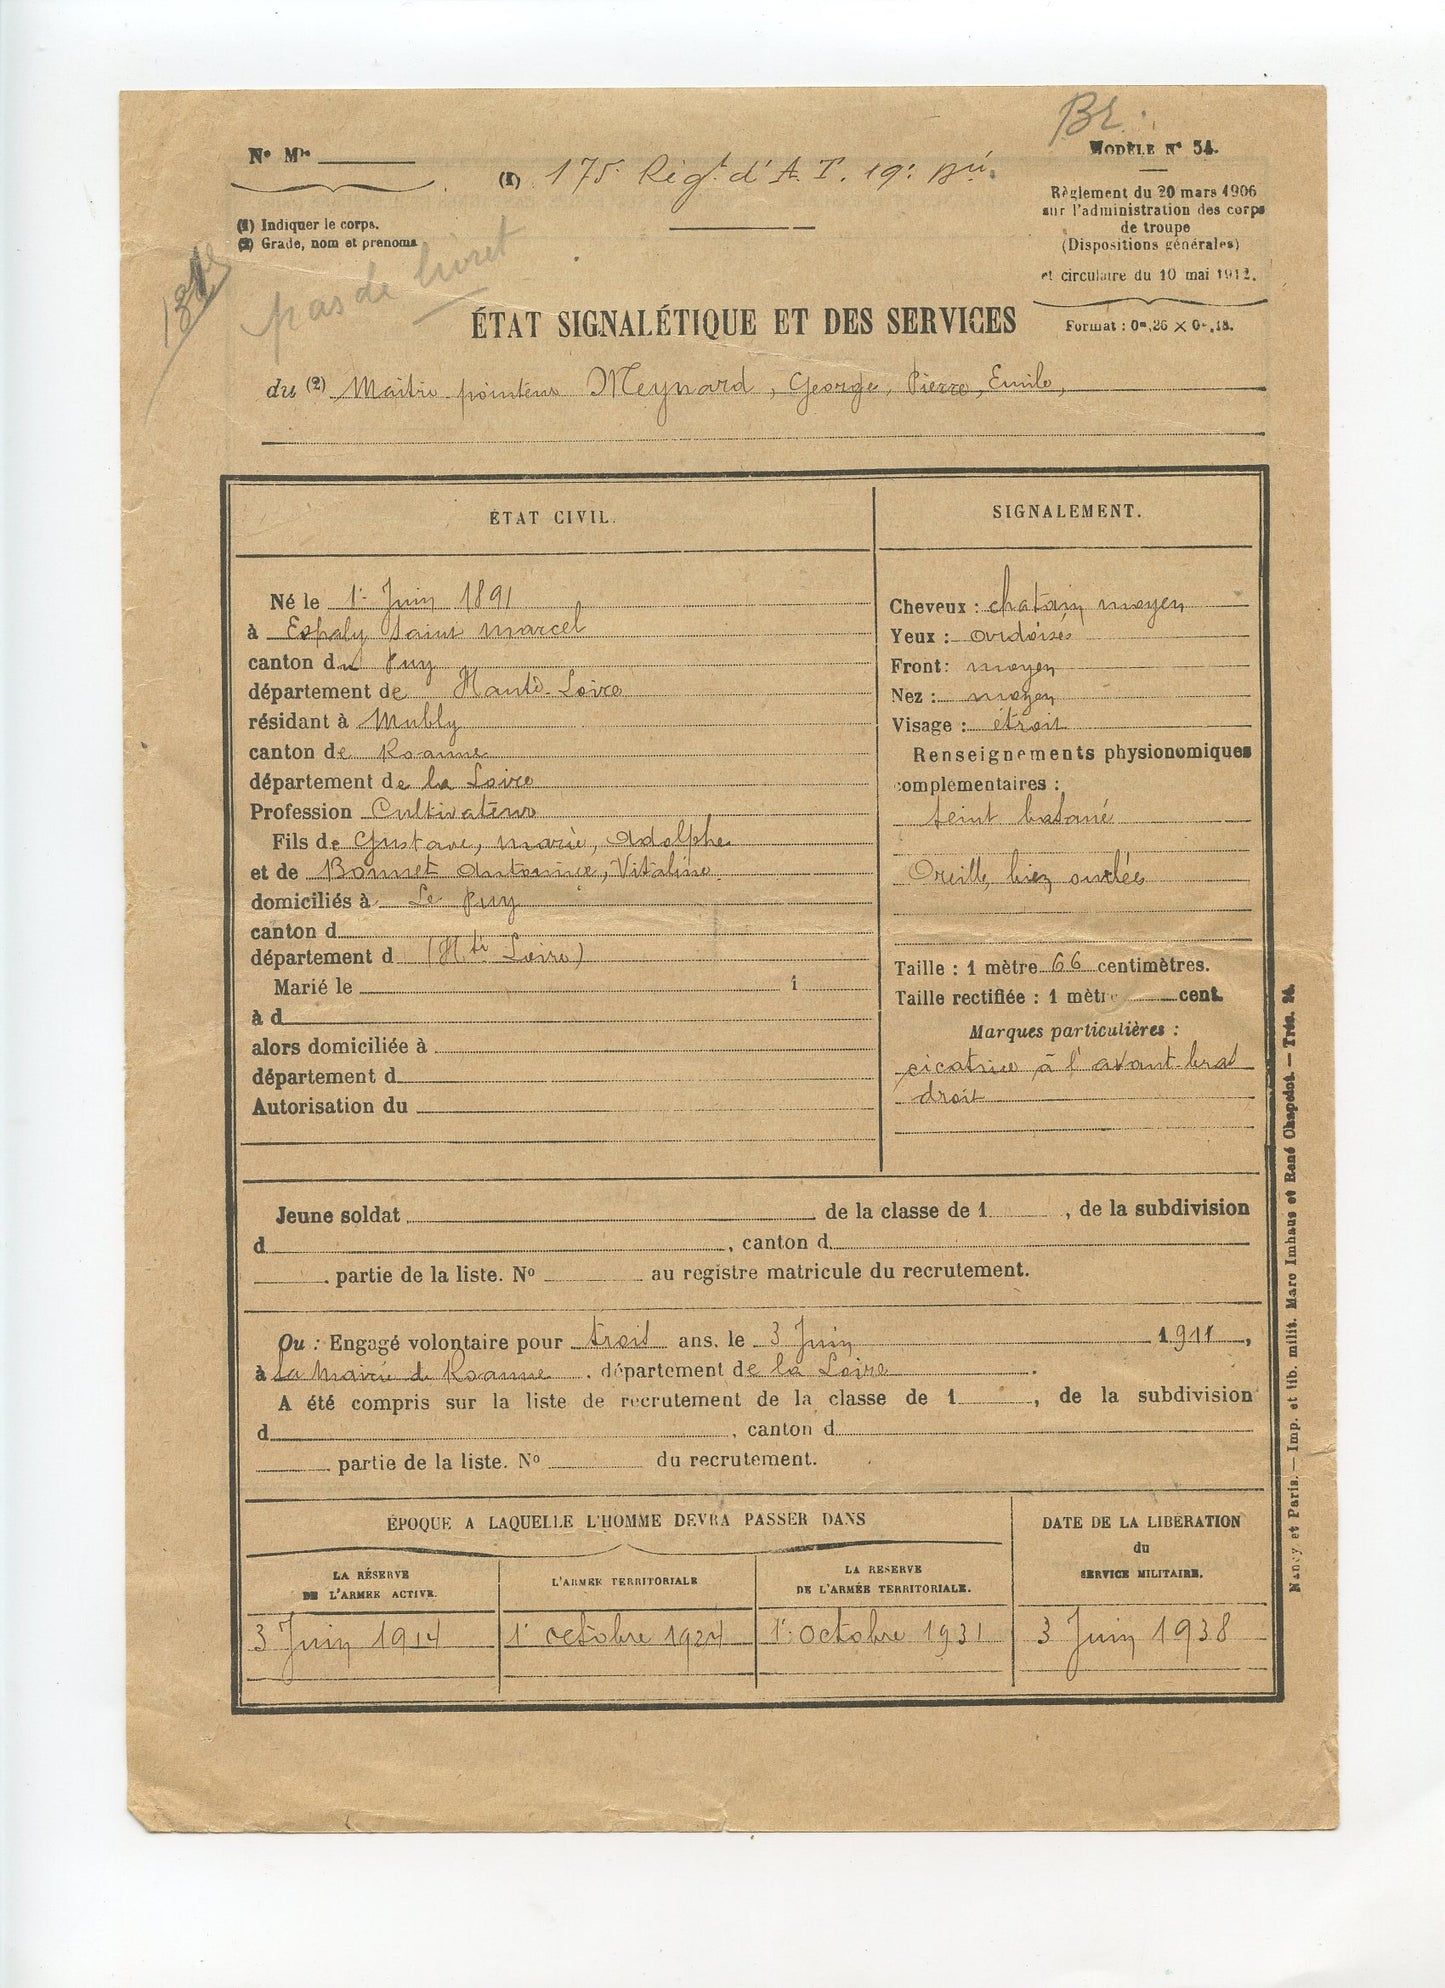 Br.
N° M^le
(1) 175° Rég^t d'A. T. 19°
MODÈLE N° 54.
(1) Indiquer le corps.
(2) Grade, nom et prénoms
Règlement du 20 mars 1906
sur l'administration des corps
de troupe
(Dispositions générales)
et circulaire du 10 mai 1912.
Format : 0^m,26 × 0^m,18.
pas de livret
ÉTAT SIGNALÉTIQUE ET DES SERVICES
du (2) Maître pointeur Meynard, George, Pierre, Emile,
ÉTAT CIVIL.
Né le 1^r Juin 1891
à Espaly Saint Marcel
canton du Puy
département de Haute-Loire
résidant à Mably
canton de Roanne
département de la Loire
Profession Cultivateur
Fils de Gustave, Marie, Adolphe
et de Bonnet Antoinice, Vitaline
domiciliés à Le Puy
canton d
département d (H^te Loire)
Marié le 1
à d
alors domiciliée à
département d
Autorisation du
SIGNALEMENT.
Cheveux : chatain moyen
Yeux : ardoisés
Front : moyen
Nez : moyen
Visage : étroit
Renseignements physionomiques
complémentaires :
teint basané
Oreille bien ourlée
Taille : 1 mètre 66 centimètres.
Taille rectifiée : 1 mètre cent.
Marques particulières :
cicatrice à l'avant-bras
droit
Jeune soldat , de la classe de 1 , de la subdivision
d , canton d
partie de la liste. N° au registre matricule du recrutement.
Ou : Engagé volontaire pour trois ans. le 3 Juin 1911,
à La Mairie de Roanne . département de la Loire .
A été compris sur la liste de recrutement de la classe de 1 , de la subdivision
d , canton d
partie de la liste. N° du recrutement.
ÉPOQUE A LAQUELLE L'HOMME DEVRA PASSER DANS
LA RÉSERVE
DE L'ARMÉE ACTIVE.
L'ARMÉE TERRITORIALE
LA RÉSERVE
DE L'ARMÉE TERRITORIALE.
DATE DE LA LIBÉRATION
du
SERVICE MILITAIRE.
3 Juin 1914
1^r octobre 1924
1^r Octobre 1931
3 Juin 1938
Nancy et Paris. — Imp. et lib. milit. Marc Imhaus et René Chapelot. —